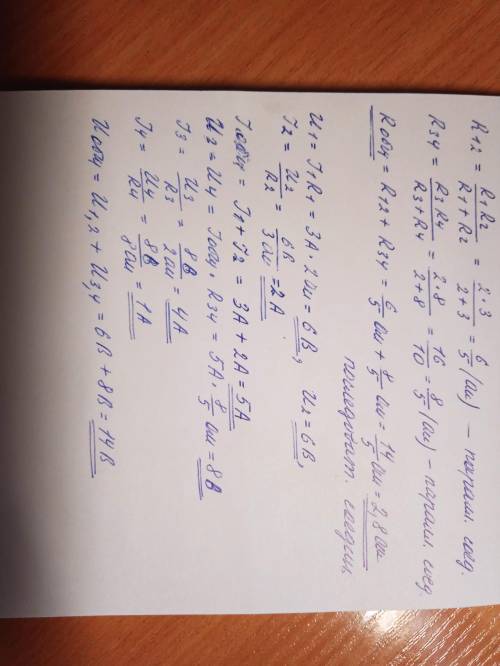 R12 = R1R2/R1+R2 = 2·3/2+3 = 6/5 (Ом) – парал. соед.
R34 = R3R4/R3+R4 = 2·8/2+8 = 16/10 = 8/5 (Ом) – парал. соед.
Rобщ = R12 + R34 = 6/5 Ом + 8/5 Ом = 14/5 Ом = 2,8 Ом
последоват. соедин.
U1 = I1R1 = 3А · 2 Ом = 6В, U2 = 6В,
I2 = U2/R2 = 6В/3 Ом = 2А
Iобщ = I1 + I2 = 3А + 2А = 5А
U3 = U4 = Iобщ · R34 = 5А · 8/5 Ом = 8В
I3 = U3/R3 = 8В/2 Ом = 4А
I4 = U4/R4 = 8В/8 Ом = 1А
Uобщ = U1,2 + U3,4 = 6В + 8В = 14В